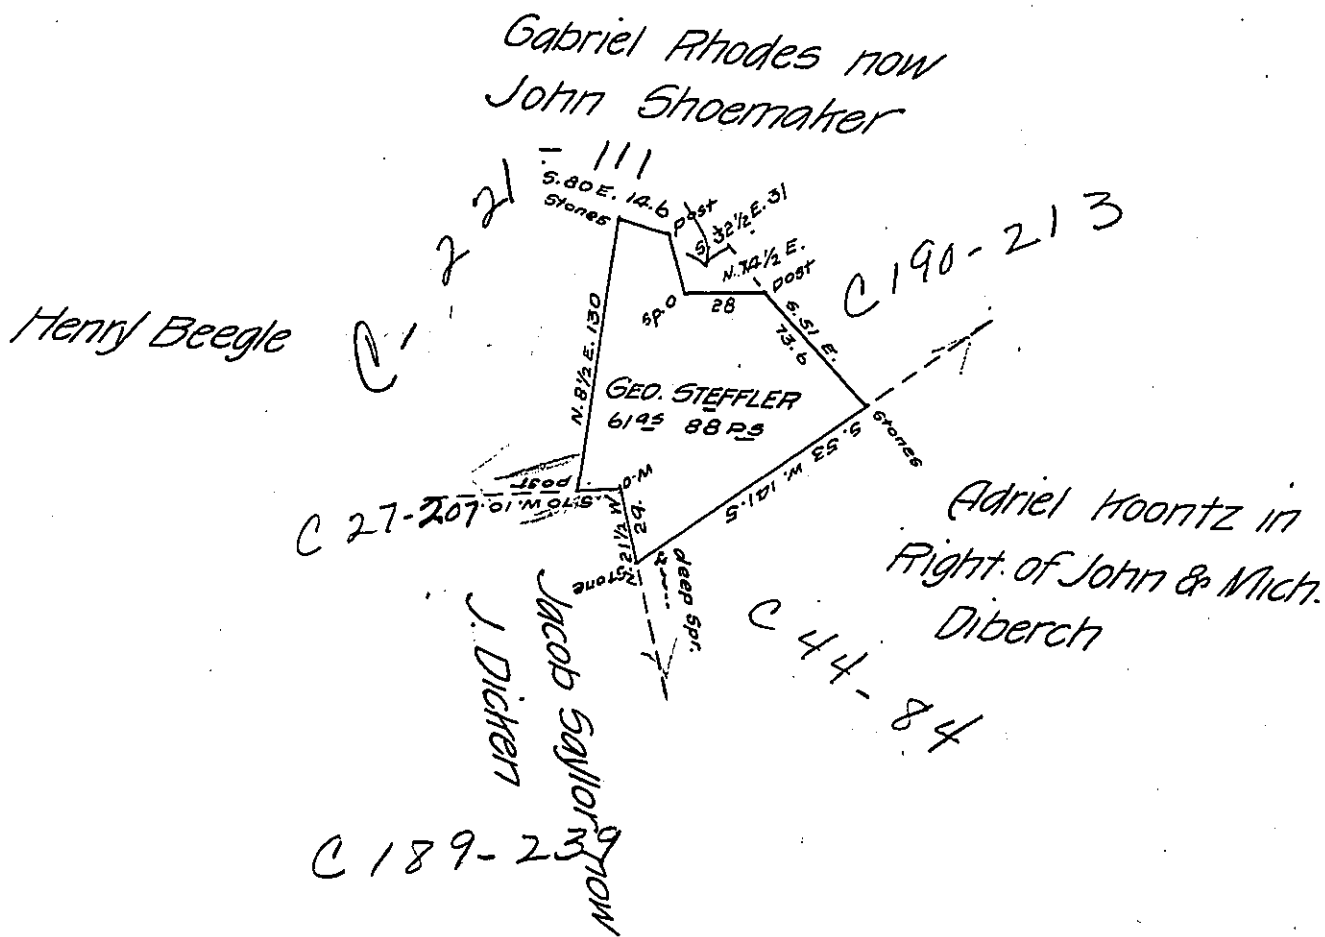 Gabriel Rhodes now
John Shoemaker
- 111
C 1 221
S.80 E. 14.6
Stones
post
S. 32½ E. 31
N. 74½ E.
post
28
sp.o
C 190-213
S. 51 E.
73.6
Henry Beegle
N. 8½ E. 130
GEO. STEFFLER
61 as 88 ps
stones
S. 53 W. 141.5
post
W.O
S. 70 W. 10.
C 27-207
N. 21½ W
29.
Stone
deep Spr.
Adriel Koontz in
Right of John & Mich.
Diberch
C 44-84
Jacob Saylor now
J. Dicken
C 189-239